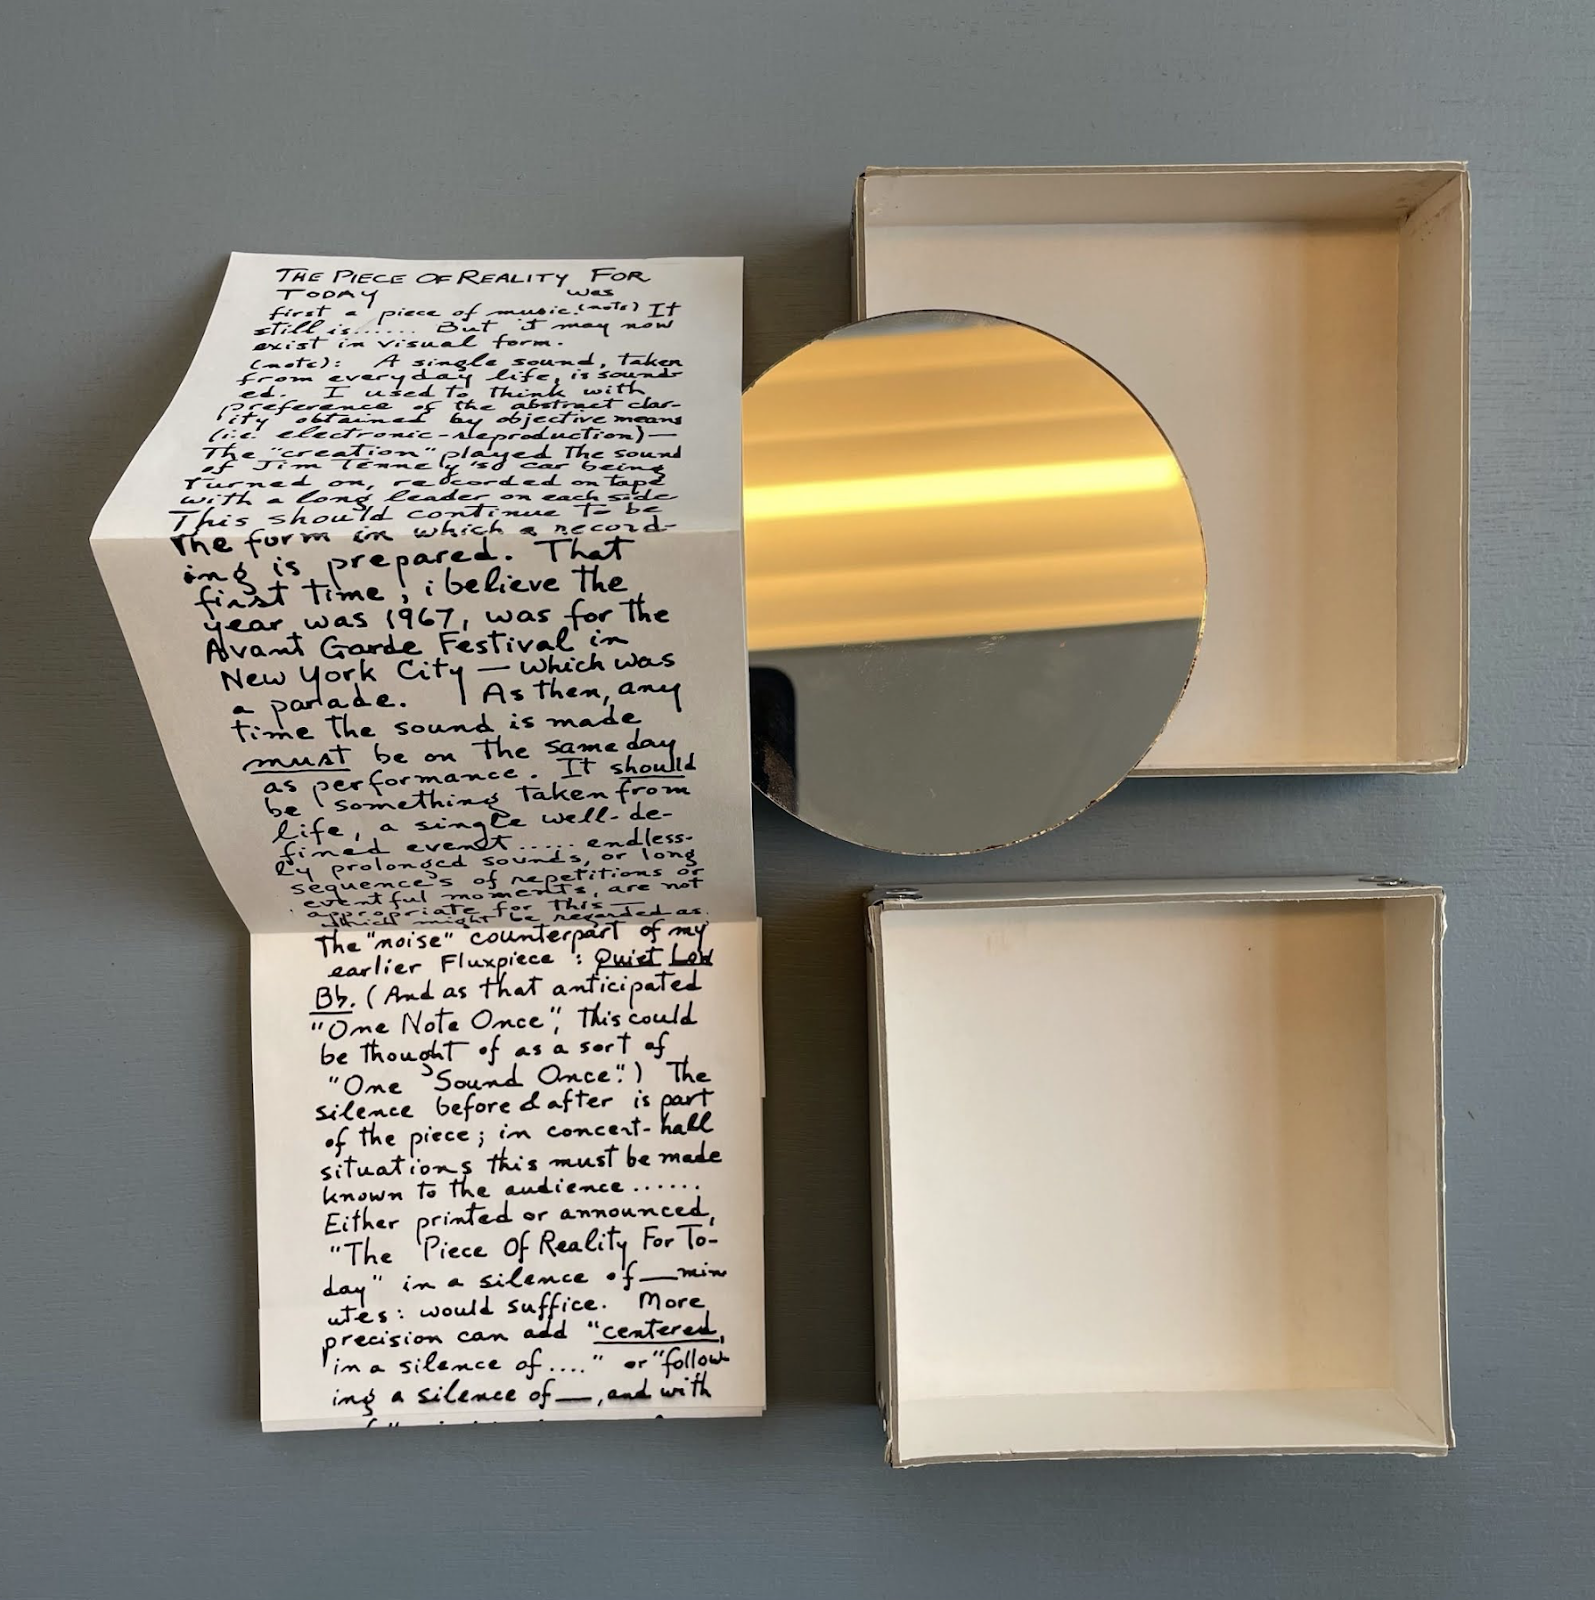 THE PIECE OF REALITY FOR
TODAY was
first a piece of music. (note) It
still is....... But it may now
exist in visual form.
(note): A single sound, taken
from everyday life, is sound-
ed. I used to think with
preference of the abstract clar-
ity obtained by objective means
(i.e. electronic-reproduction)—
The "creation" played the sound
of Jim Tenney's car being
turned on, recorded on tape
with a long leader on each side
This should continue to be
the form in which a record-
ing is prepared. That
first time, i believe the
year was 1967, was for the
Avant Garde Festival in
New York City — which was
a parade. As then, any
time the sound is made
must be on the same day
as performance. It should
be something taken from
life, a single well-de-
fined event..... endless-
ly prolonged sounds, or long
sequences of repetitions or
eventful moments, are not
appropriate for this—
which might be regarded as
the "noise" counterpart of my
earlier Fluxpiece: Quiet Low
Bb. (And as that anticipated
"One Note Once", this could
be thought of as a sort of
"One Sound Once".) The
silence before & after is part
of the piece; in concert-hall
situations this must be made
known to the audience......
Either printed or announced,
"The Piece Of Reality For To-
day" in a silence of __ min
utes: would suffice. More
precision can add "centered,
in a silence of...." or "follow-
ing a silence of __, and with